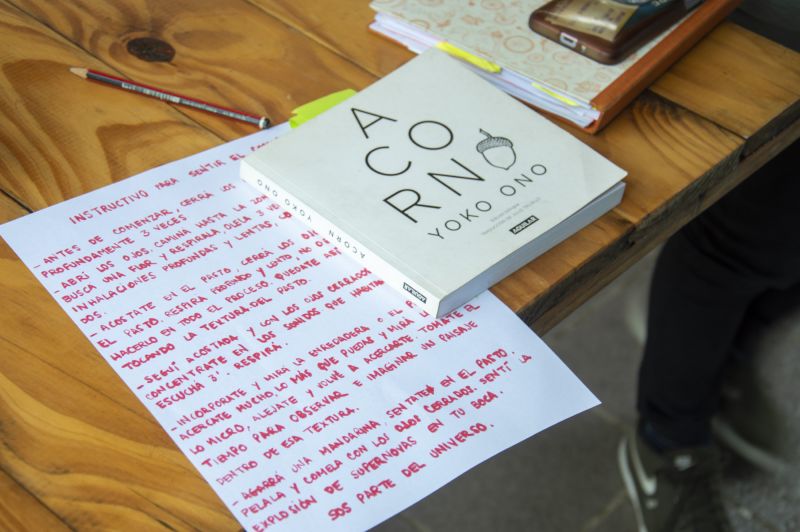 ACORN
YOKO ONO
Edición bilingüe
AGUILAR
ACORN YOKO ONO
AGUILAR
INSTRUCTIVO PARA SENTIR EL
- ANTES DE COMENZAR CERRÁ LOS
PROFUNDAMENTE 3 VECES
- ABRÍ LOS OJOS, CAMINÁ HASTA LA
BUSCA UNA FLOR Y RESPIRALA, OLELA 3
INHALACIONES PROFUNDAS Y LENTAS,
DOS.
- ACOSTATE EN EL PASTO, CERRÁ LOS
EL PASTO. RESPIRÁ PROFUNDO Y LENTO, NO
HACERLO EN TODO EL PROCESO. QUEDATE ASÍ
TOCANDO LA TEXTURA DEL PASTO.
- SEGUÍ ACOSTADA Y CON LOS OJOS CERRADOS
CONCENTRATE EN LOS SONIDOS QUE HABITAN
ESCUCHÁ 3'. RESPIRÁ.
- INCORPORATE Y MIRÁ LA ENREDADERA O EL
ACERCATE MUCHO, LO MÁS QUE PUEDAS Y MIRÁ
LO MICRO, ALEJATE Y VOLVÉ A ACERCARTE. TOMATE EL
TIEMPO PARA OBSERVAR E IMAGINAR UN PAISAJE
DENTRO DE ESA TEXTURA.
- AGARRÁ UNA MANDARINA, SENTATE EN EL PASTO
PELALA Y COMELA CON LOS OJOS CERRADOS. SENTÍ LA
EXPLOSIÓN DE SUPERNOVAS EN TU BOCA.
SOS PARTE DEL UNIVERSO.